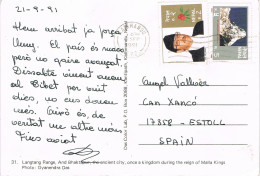 21-9-91
Hem arribat ja força
lluny. El país és maco
però no gaire avançat.
Dissabte vinent anem
al Tibet per vuit
dies, no ens donen
mes. Això és, de
veritat un altre mon.
Fins aviat
Àngel Vallvé
CAN XANCÓ
17258 - ESTOLL
SPAIN
31. Langtang Range, And Bhaktapur, An ancient city, once a kingdom during the reign of Malla Kings
Photo: Gyanendra Das